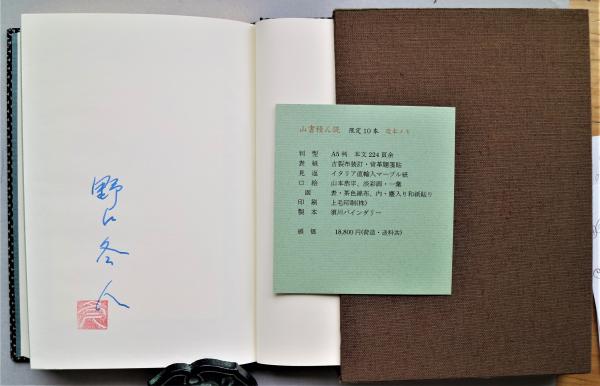 野口冬人
山書積人説 限定10本 造本メモ
判型 A5判 本文224頁余
表紙 古製布装釘・背革題箋貼
見返 イタリア直輸入マーブル紙
口絵 山本恭平、淡彩画・一葉
函 表・茶色綿布、内・塵入り和紙貼り
印刷 上毛印刷(株)
製本 須川バインダリー
頒価 18,800円(荷造・送料共)